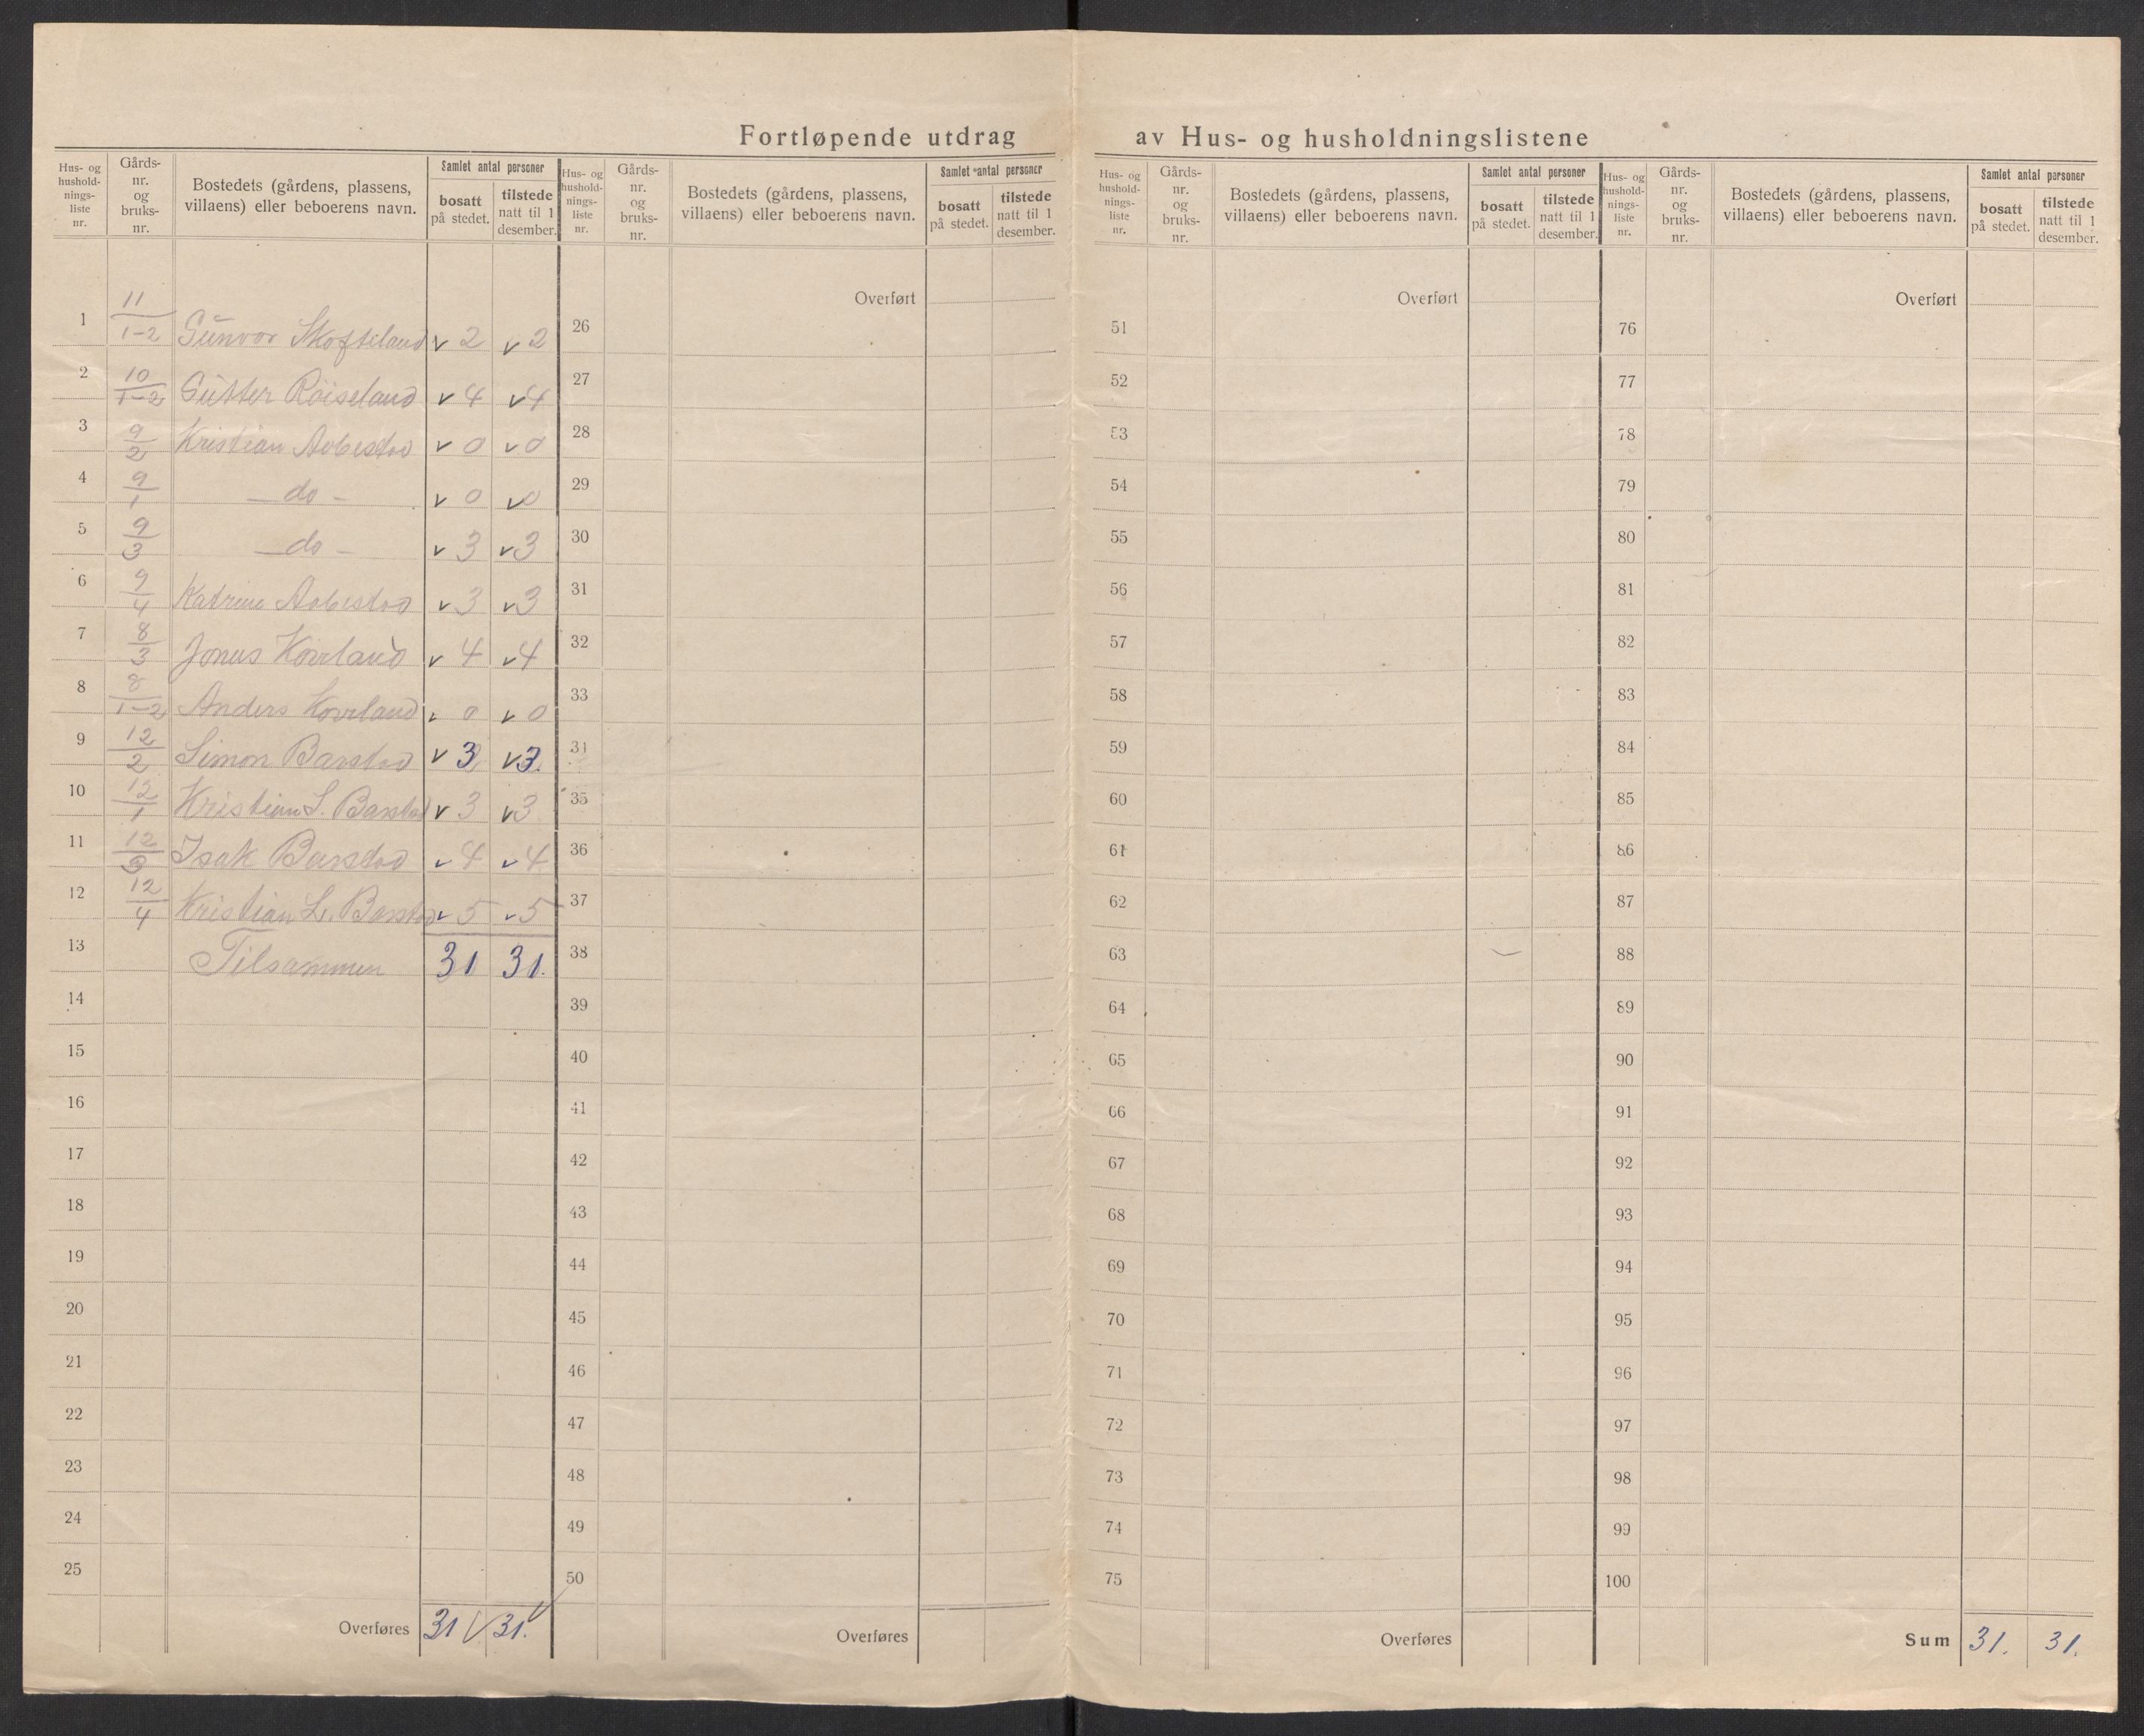 Fortløpende utdrag av Hus- og husholdningslistene
Hus- og husholdnings-liste nr. | Gårds-nr. og bruks-nr. | Bostedets (gårdens, plassens, villaens) eller beboerens navn. | Samlet antal personer | bosatt på stedet. | tilstede natt til 1 desember.
1 | 11/1-2 | Gunvor Skofteland | v 2 | v 2
2 | 10/1-2 | Røiseland | v 4 | v 4
3 | 9/2 | Kristian Aabestad | v 0 | v 0
4 | 9/1 | — do - | v 0 | v 0
5 | 9/3 | — do - | v 3 | v 3
6 | 9/4 | Katrine Aabestad | v 3 | v 3
7 | 8/3 | Jonas Kovland | v 4 | v 4
8 | 8/1-2 | Anders Kovland | v 0 | v 0
9 | 12/2 | Simon Barstad | v 3 | v 3.
10 | 12/1 | Kristian S. Barstad | v 3 | v 3
11 | 12/3 | Isak Barstad | v 4 | v 4
12 | 12/4 | Kristian L. Barstad | v 5 | v 5
13 | Tilsammen | 31 | 31.
14
15
16
17
18
19
20
21
22
23
24
25
Overføres 31 v 31. v
Hus- og husholdnings-liste nr. | Gårds-nr. og bruks-nr. | Bostedets (gårdens, plassens, villaens) eller beboerens navn. | Samlet antal personer | bosatt på stedet. | tilstede natt til 1 desember.
Overført
26
27
28
29
30
31
32
33
34
35
36
37
38
39
40
41
42
43
44
45
46
47
48
49
50
Overføres
Hus- og husholdnings-liste nr. | Gårds-nr. og bruks-nr. | Bostedets (gårdens, plassens, villaens) eller beboerens navn. | Samlet antal personer | bosatt på stedet. | tilstede natt til 1 desember.
Overført
51
52
53
54
55
56
57
58
59
60
61
62
63
64
65
66
67
68
69
70
71
72
73
74
75
Overføres
Hus- og husholdnings-liste nr. | Gårds-nr. og bruks-nr. | Bostedets (gårdens, plassens, villaens) eller beboerens navn. | Samlet antal personer | bosatt på stedet. | tilstede natt til 1 desember.
Overført
76
77
78
79
80
81
82
83
84
85
86
87
88
89
90
91
92
93
94
95
96
97
98
99
100
Sum 31. 31.